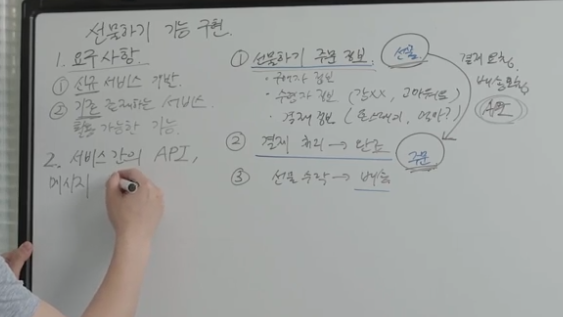 선물하기 기능 구현.
1. 요구사항.
① 신규 서비스 개발.
② 기존 존재하는 서비스.
활용 가능한 기능.
2. 서비스 간의 API,
메시지
① 선물하기 주문 정보
· 구매자 정보
· 수령자 정보 (김XX,
· 결제 정보
② 결제 처리 → 완료
③ 선물 수락 → 배송
선물
주문
결제 요청,
배송 요청